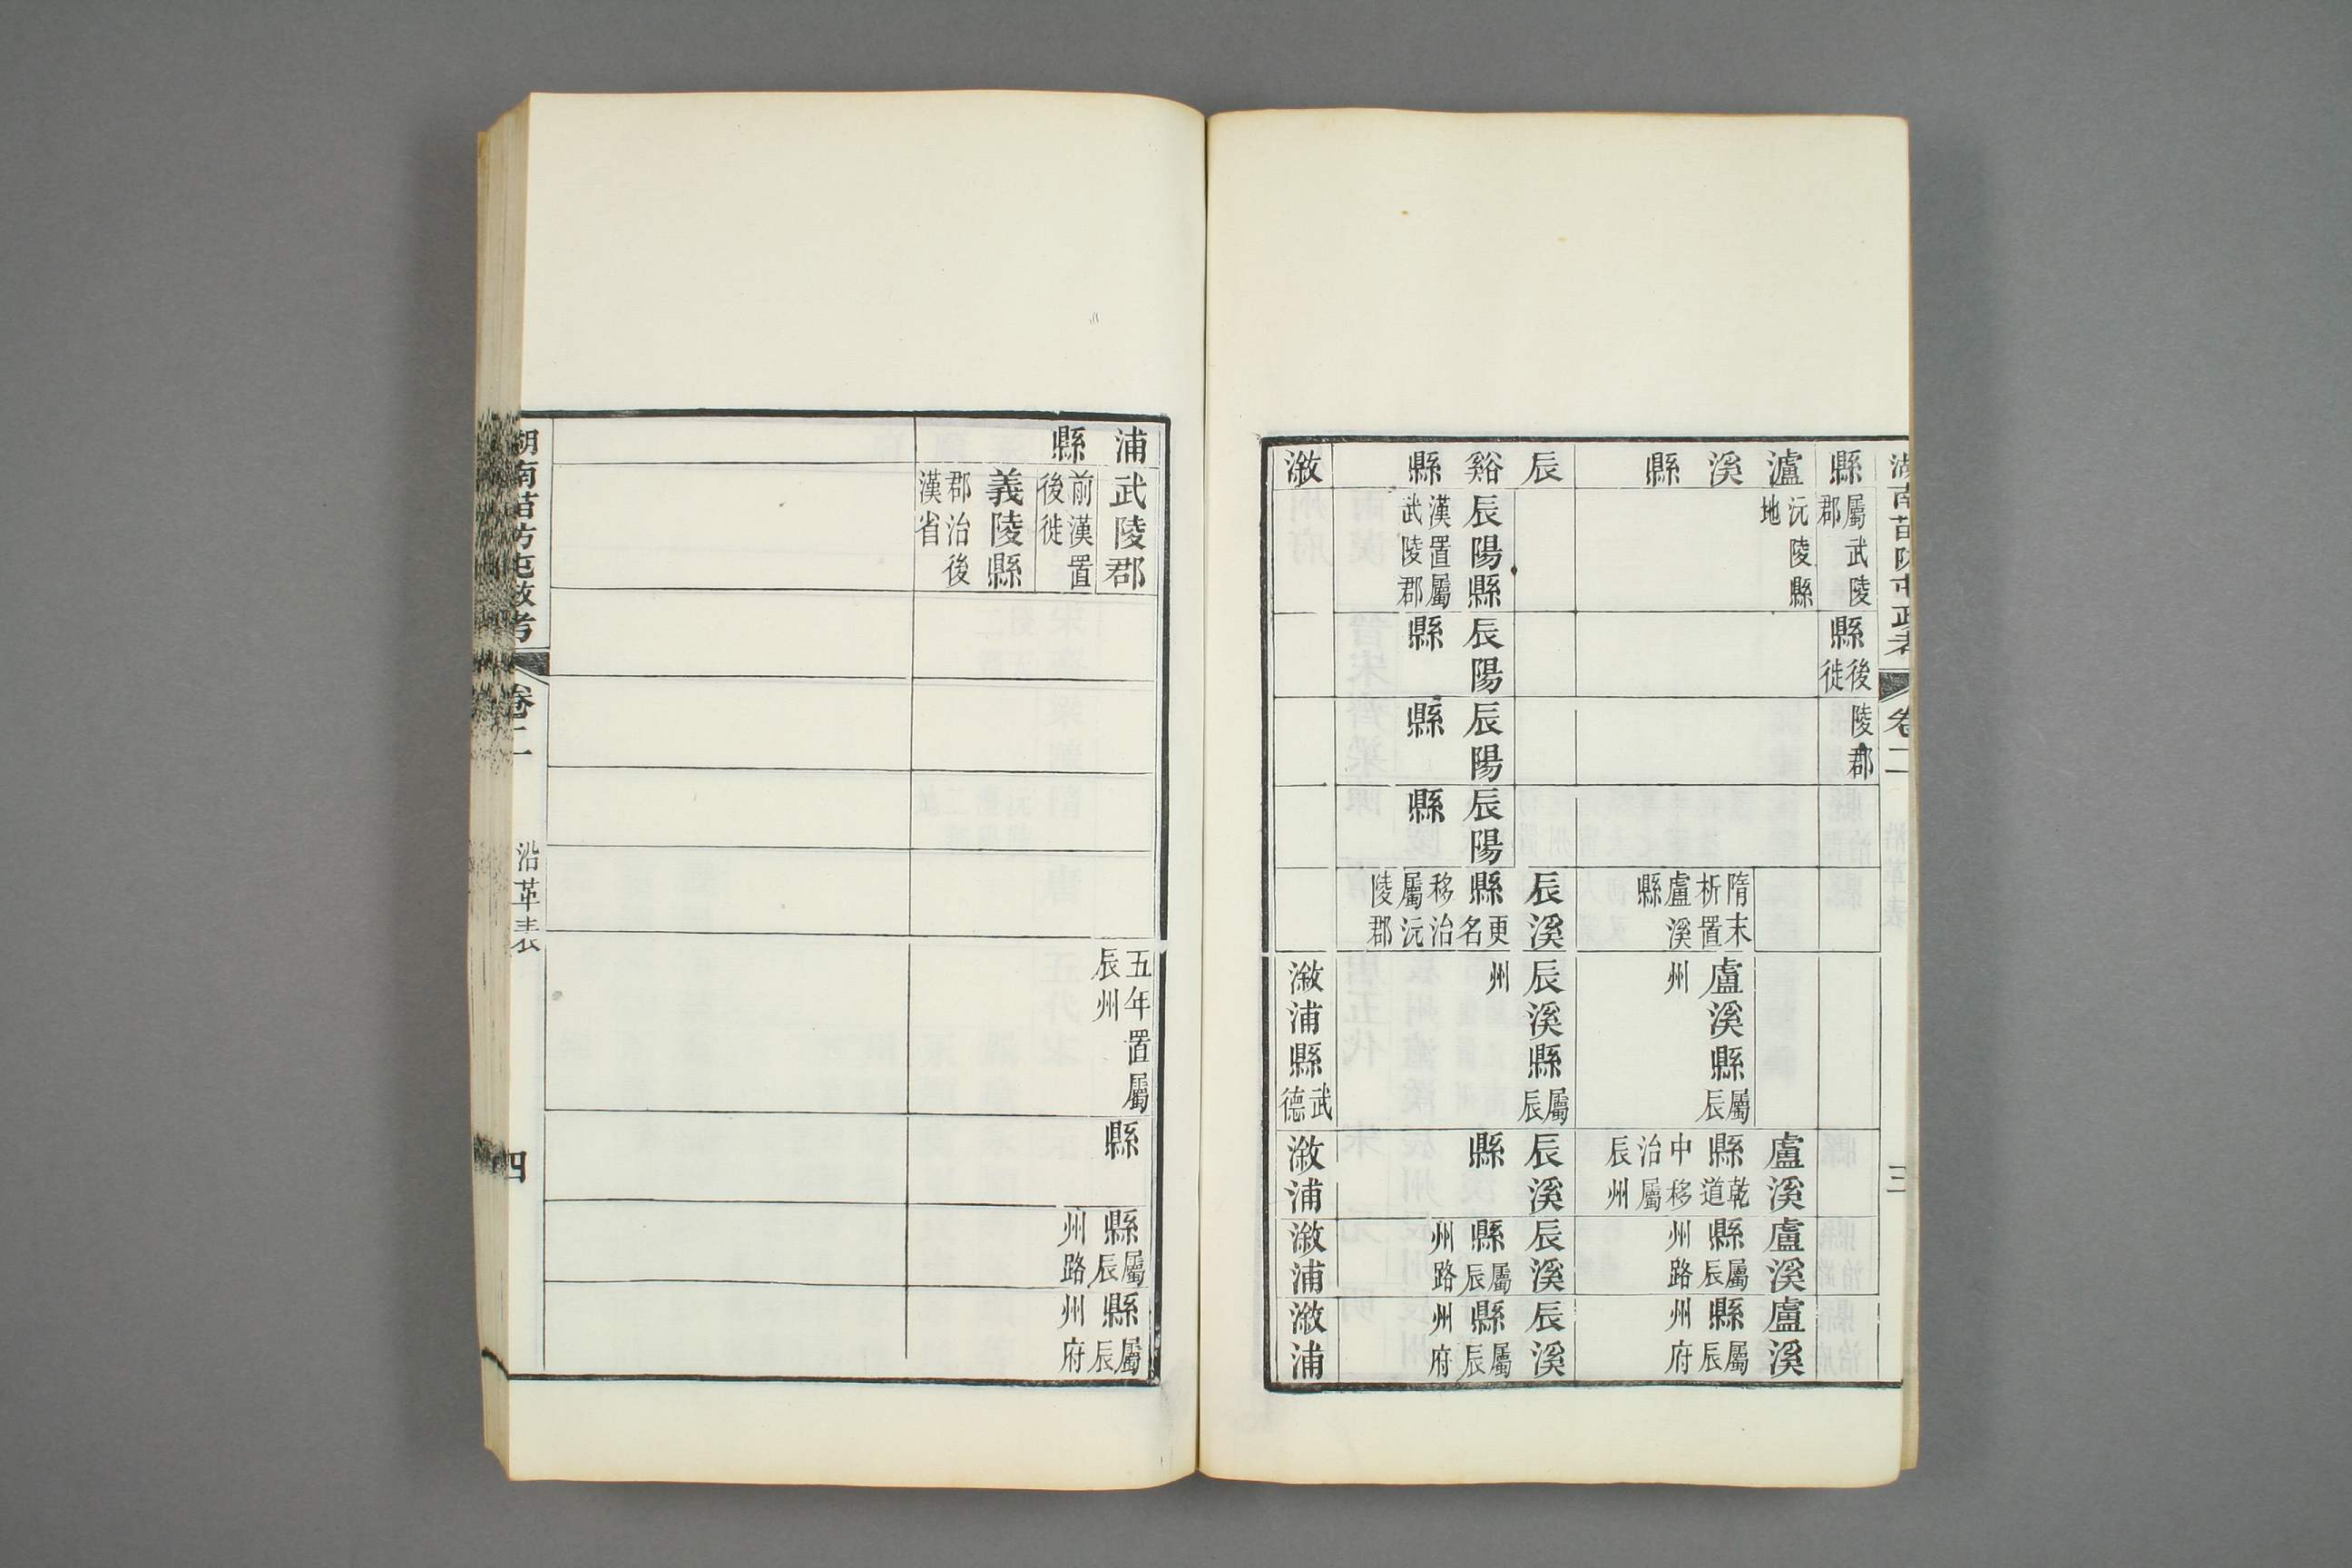 湖南苗防屯政考
卷二
三
縣
屬武陵
郡
縣後
徙
陵
郡
瀘溪縣
沅陵縣
地
隋末
析置
盧溪
縣
盧溪縣屬辰
州
盧溪
縣乾道
中移
治屬
辰州
盧溪
縣屬辰
州路
盧溪
縣屬辰
州府
辰谿縣
辰陽縣
漢置屬
武陵郡
辰陽
縣
辰陽
縣
辰陽
縣
辰溪
縣更名
移治
屬沅
陵郡
辰溪縣屬辰
州
辰溪
縣
辰溪
縣屬辰
州路
辰溪
縣屬辰
州府
漵
漵浦縣武德
漵浦
漵浦
漵浦
浦縣
武陵郡
前漢置
後徙
義陵縣
郡治後
漢省
五年置屬
辰州
縣
縣屬辰
州路
縣屬辰
州府
湖南苗防屯政考
卷二
沿革表
四